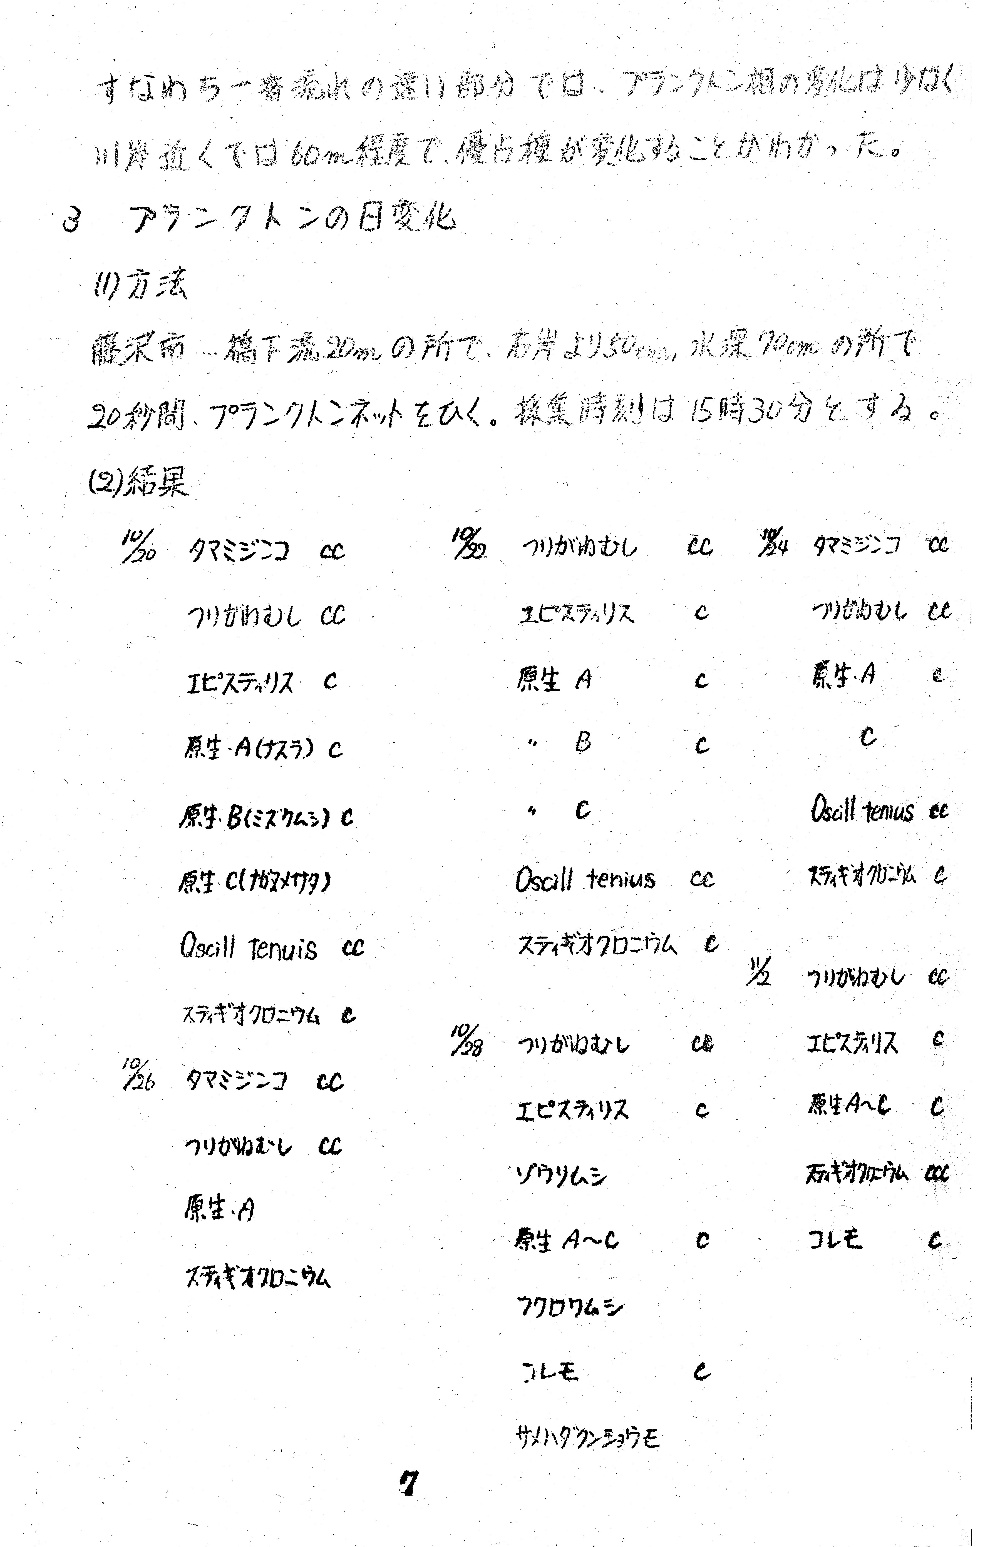 すなわち一番流れの速い部分では、プランクトン相の変化は少なく
川岸近くでは60m程度で、優占種が変化することがわかった。
3 プランクトンの日変化
(1)方法
藤沢市 橋下流20mの所で、右岸より50cm, 水深70cmの所で
20秒間、プランクトンネットをひく。採集時刻は15時30分とする。
(2)結果
10/20 タマミジンコ cc
つりがねむし cc
エピスティリス c
原生・A(ナスラ) c
原生・B(ミズケムシ) c
原生C()
Oscill Tenuis cc
スティギオクロニウム c
10/26 タマミジンコ cc
つりがねむし cc
原生・A
スティギオクロニウム
10/22 つりがねむし cc
エピスティリス c
原生 A c
〃 B c
〃 C
Oscill tenius cc
スティギオクロニウム c
10/28 つりがねむし cc
エピスティリス c
ゾウリムシ
原生 A～C c
フクロワムシ
コレモ c
サメハダクンショウモ
10/24 タマミジンコ cc
つりがねむし cc
原生・A c
C
Oscill tenius cc
スティギオクロニウム c
11/2 つりがねむし cc
エピスティリス c
原生A～C c
スティギオクロニウム ccc
コレモ c
7